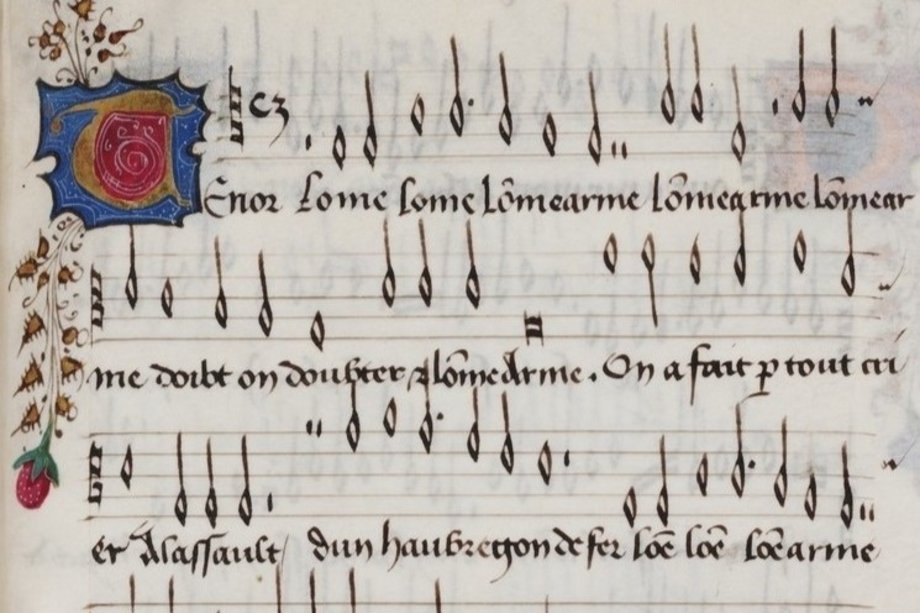 TEnor Lome lome lōmearme lōmearme lōmear
me doibt on doubter ꝛ lōme Arme. On a fait ꝑ tout cri
er Alassault dun haubregon de fer lōe lōe lōearme